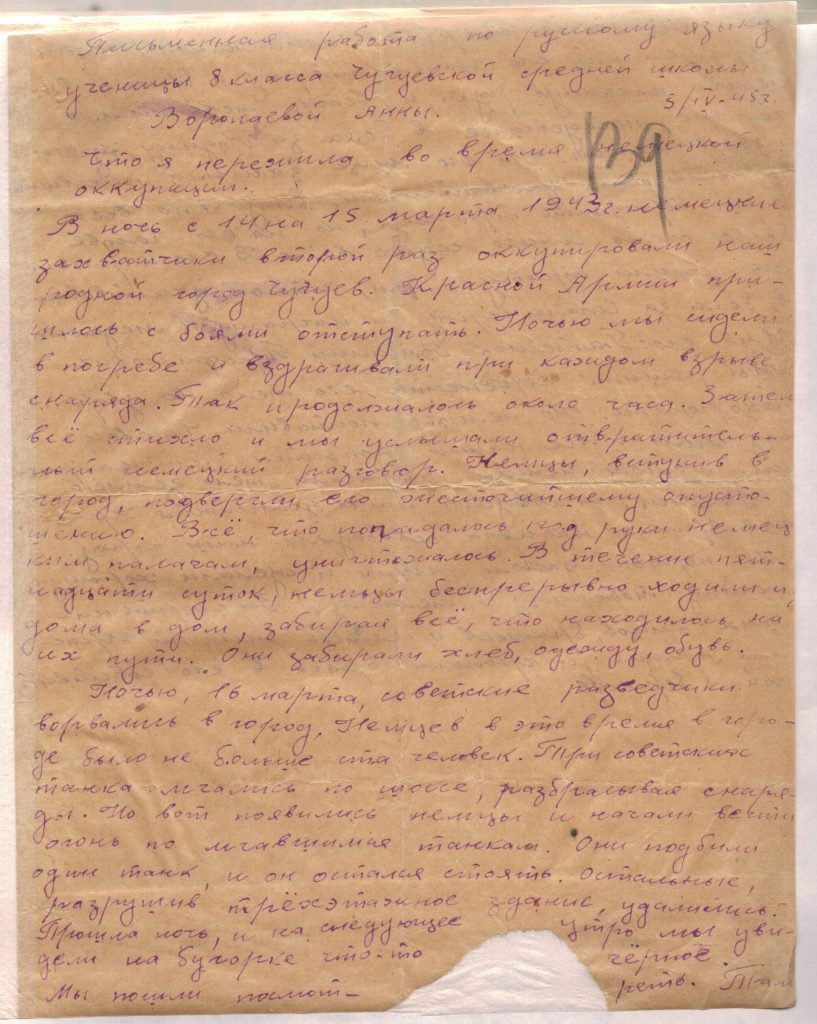 Письменная работа по русскому языку
ученицы 8 класса Чугуевской средней школы
Воропаевой Анны. 5/IV-45г.
139
Что я пережила во время немецкой
оккупации.
В ночь с 14 на 15 марта 1943г. немецкие
захватчики второй раз оккупировали наш
родной город Чугуев. Красной Армии при-
шлось с боями отступать. Ночью мы сидели
в погребе и вздрагивали при каждом взрыве
снаряда. Так продолжалось около часа. Затем
всё стихло и мы услышали отвратитель-
ный немецкий разговор. Немцы, вступив в
город, подвергли его жесточайшему опусто-
шению. Всё, что попадалось под руки немец
ким палачам, уничтожалось. В течение пят-
надцати суток, немцы беспрерывно ходили из
дома в дом, забирая всё, что находилось на
их пути. Они забирали хлеб, одежду, обувь.
Ночью, 16 марта, советские разведчики
ворвались в город. Немцев в это время в горо-
де было не больше ста человек. Три советских
танка мчались по шоссе, разбрасывая снаря-
ды. Но вот появились немцы и начали вести
огонь по мчавшимся танкам. Они подбили
один танк, и он остался стоять. Остальные,
разрушив трёхэтажное здание, удалились.
Прошла ночь, и на следующее утро мы уви-
дели на бугорке что-то чёрное.
Мы пошли посмот- реть. Там